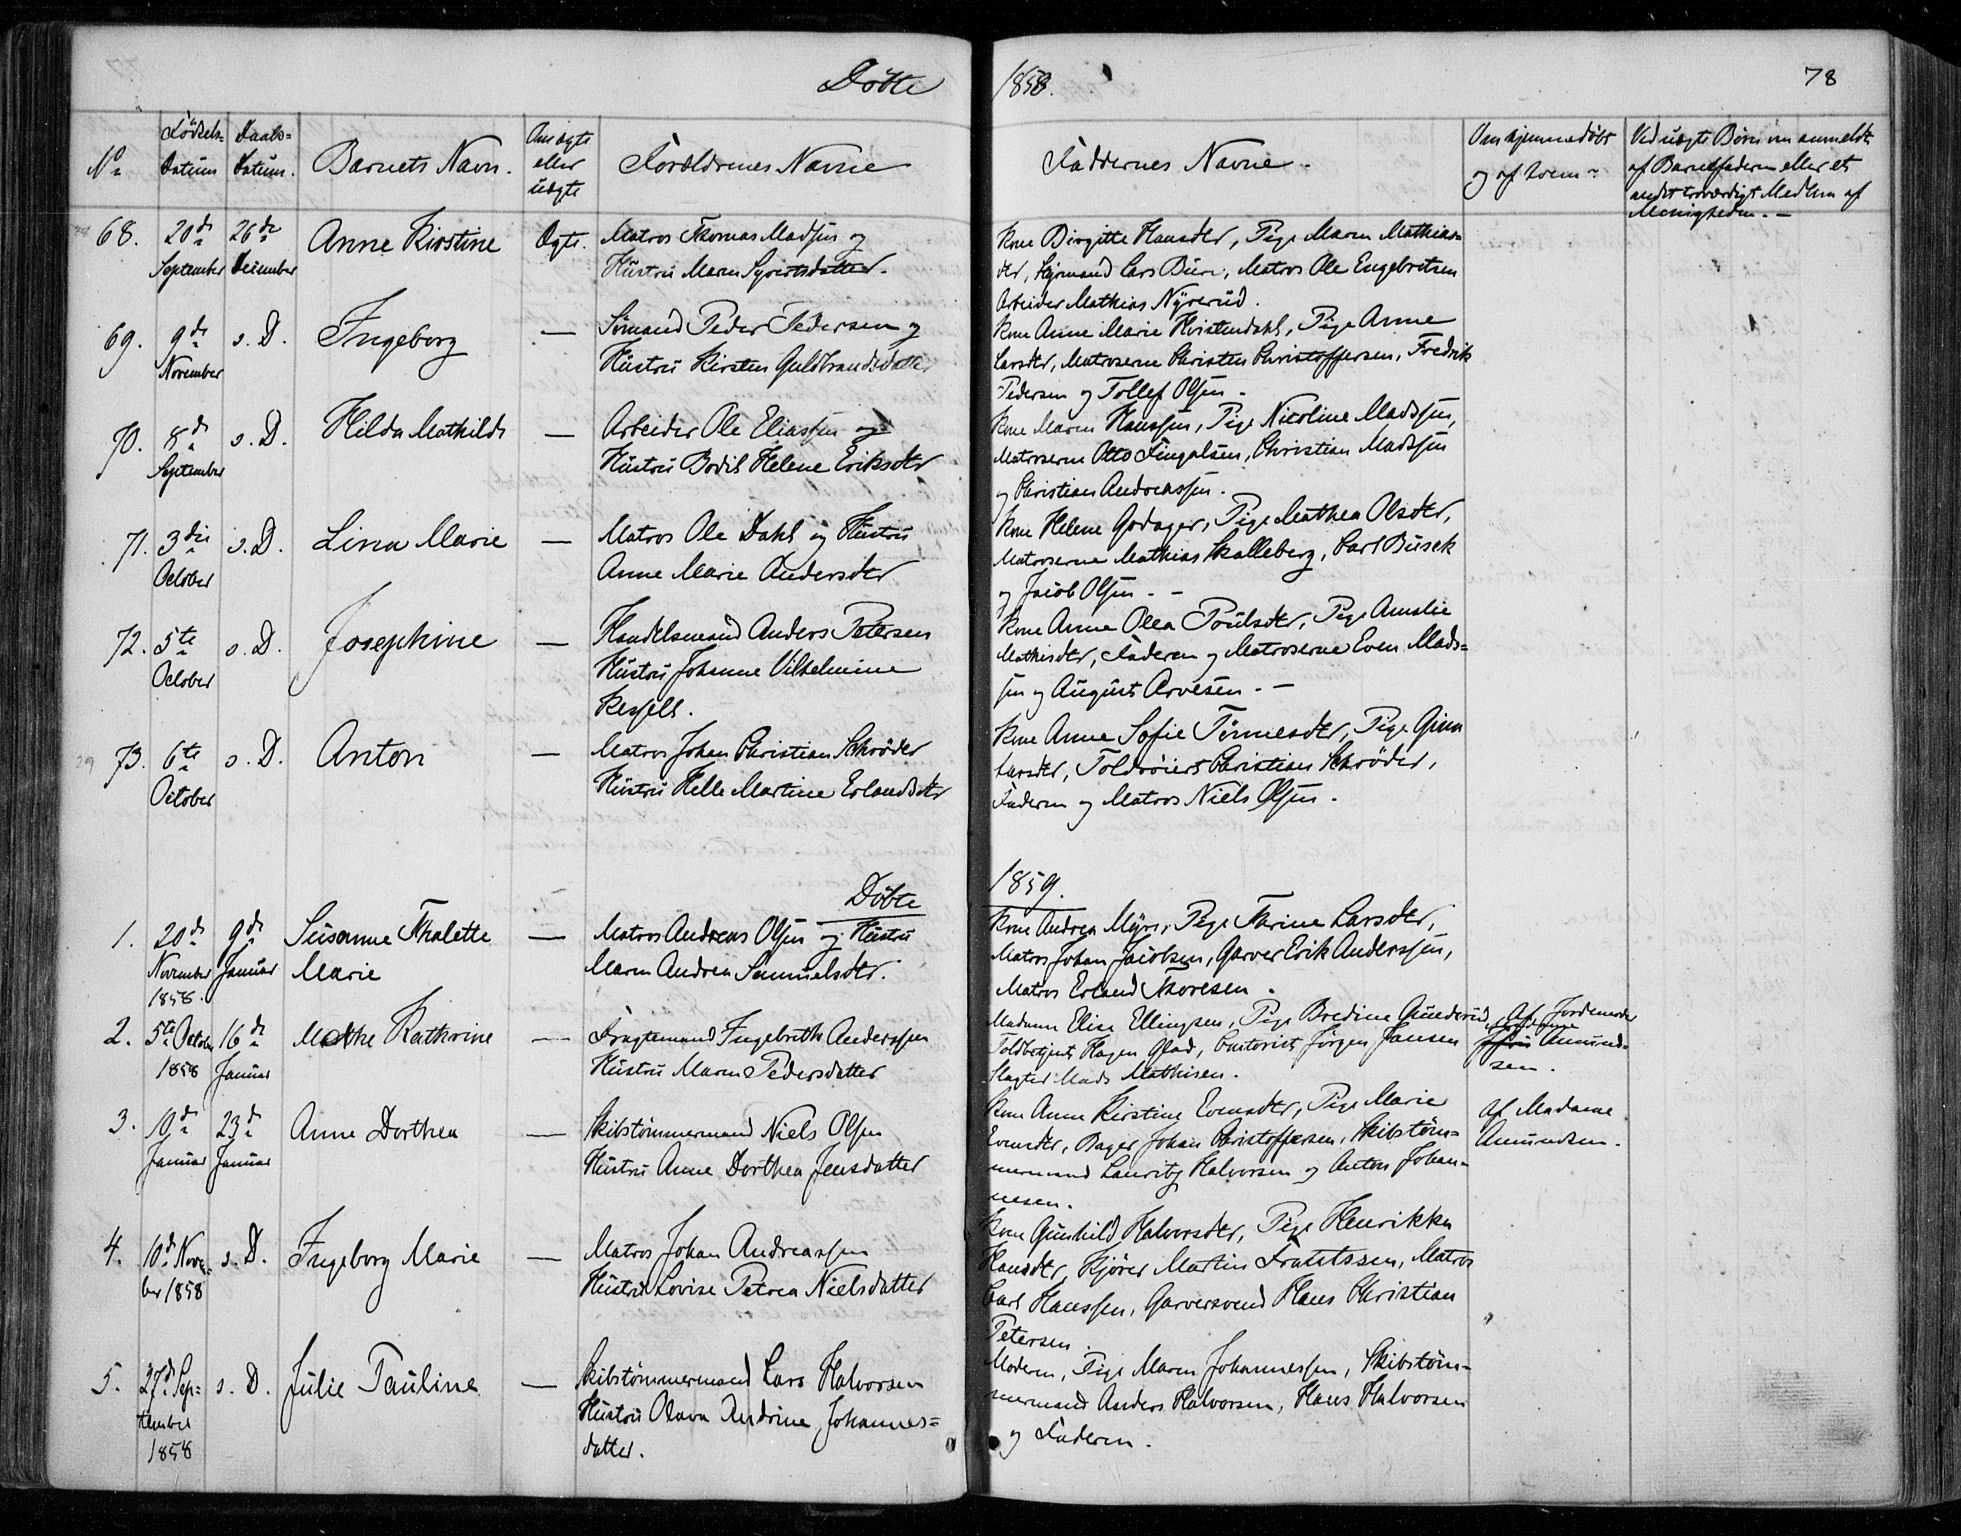 Døbte 1858. 78
No Fødsels-Datum Daabs-Datum. Barnets Navn. Om ægte eller uægte Forældrenes Navne Faddernes Navne. Om hjemmedøbt og af hvem Ved uægte Børn om anmeldt af Barnefaderen eller et andet troværdigt Medlem af Menigheden.
68. 20de September 26de December Anne Kirstine Ægte. Matros Thomas Madsen og
Hustru Maren Syvertsdatter.
Kone Birgitte Hansdtr, Pige Maren Mathias-
dtr, Styrmand Lars Bure, Matros Ole Engebretsen
Arbeider Mathias Nyrerud.
69. 9de November s. D. Ingeborg — Sømand Peder Pedersen og
Hustru Kirsten Guldbrandsdatter
Kone Anne Marie Hvistendahl, Pige Anne
Larsdtr, Matroserne Christen Christoffersen, Fredrik
Pedersen og Tollef Olsen.
70. 8de September s. D. Hilda Mathilde — Arbeider Ole Eliassen og
Hustru Bodil Helene Eriksdtr
Kone Maren Hanssen, Pige Nicoline Madssen,
Matroserne Otto Fingalsen, Christian Madssen
og Christian Andreassen.
71. 3die October s. D. Lina Marie — Matros Ole Dahl og Hustru
Anne Marie Andersdtr
Kone Helene Godager, Pige Mathea Olsdtr,
Matroserne Mathias Skalleberg, Carl Busck
og Jacob Olsen.
72. 5te October s. D. Josephine — Handelsmand Anders Petersen
Hustru Johanne Vilhelmine
Kesfeld.
Kone Anne Olea Poulsdtr, Pige Amalie
Mathisdtr, Faderen og Matroserne Even Mads-
sen og August Arvesen.
73. 6te October s. D. Anton — Matros Johan Christian Schrøder
Hustru Helle Martine Erlandsdtr
Kone Anne Sofie Tønnesdtr, Pige Gina
Larsdtr, Toldrøiert Christian Schrøder,
Faderen og Matros Niels Olsen.
Døbte 1859.
1. 20de November 1858. 9de Januar Susanne Thalette Marie — Matros Andreas Olsen og Hustru
Maren Andrea Samuelsdtr.
Kone Andrea Myre, Pige Karine Larsdtr,
Matros Johan Jacobsen, Garver Erik Anderssen,
Matros Erland Thoresen.
2. 5te October 1858 16de Januar Mathe Kathrine — Fragtemand Ingebreth Anderssen
Hustru Maren Pedersdatter
Madame Elise Ellingsen, Pige Bredine Gunderud
Toldbetjent Hagen Glad, Contorist Jørgen Jansen
Slagter Mads Mathisen.
Af Jordemoder
Madame
Amund-
sen.
3. 10de Januar 23de Januar Anne Dorthea — Skibstømmermand Niels Olsen
Hustru Anne Dorthea Jensdatter
Kone Anne Kirstine Evensdtr, Pige Marie
Evensdtr, Bager Johan Christoffersen, Skibstøm-
mermand Lauritz Halvorsen og Anton Johan-
nesen.
Af Madame
Amundsen.
4. 10de Novem-
ber 1858 s. D. Ingeborg Marie — Matros Johan Andreassen
Hustru Lovise Petrea Nielsdatter
Kone Gunhild Halvorsdtr, Pige Henrikke
Hansdtr, Kjører Martin Frantssen, Matros
Carl Hanssen, Garversvend Hans Christian
Petersen.
5. 27de Sep-
tember
1858 s. D. Julie Pauline — Skibstømmermand Lars Halvorsen
Hustru Olava Andrine Johannes-
datter.
Moderen, Pige Maren Johannessen, Skibstøm-
mermand Anders Halvorsen, Hans Halvorsen
og Faderen.